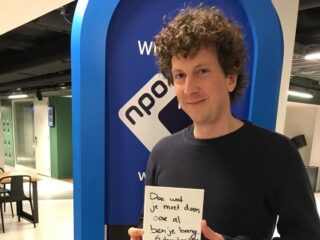 npo
Doe wat
je moet doen
ook al
ben je bang